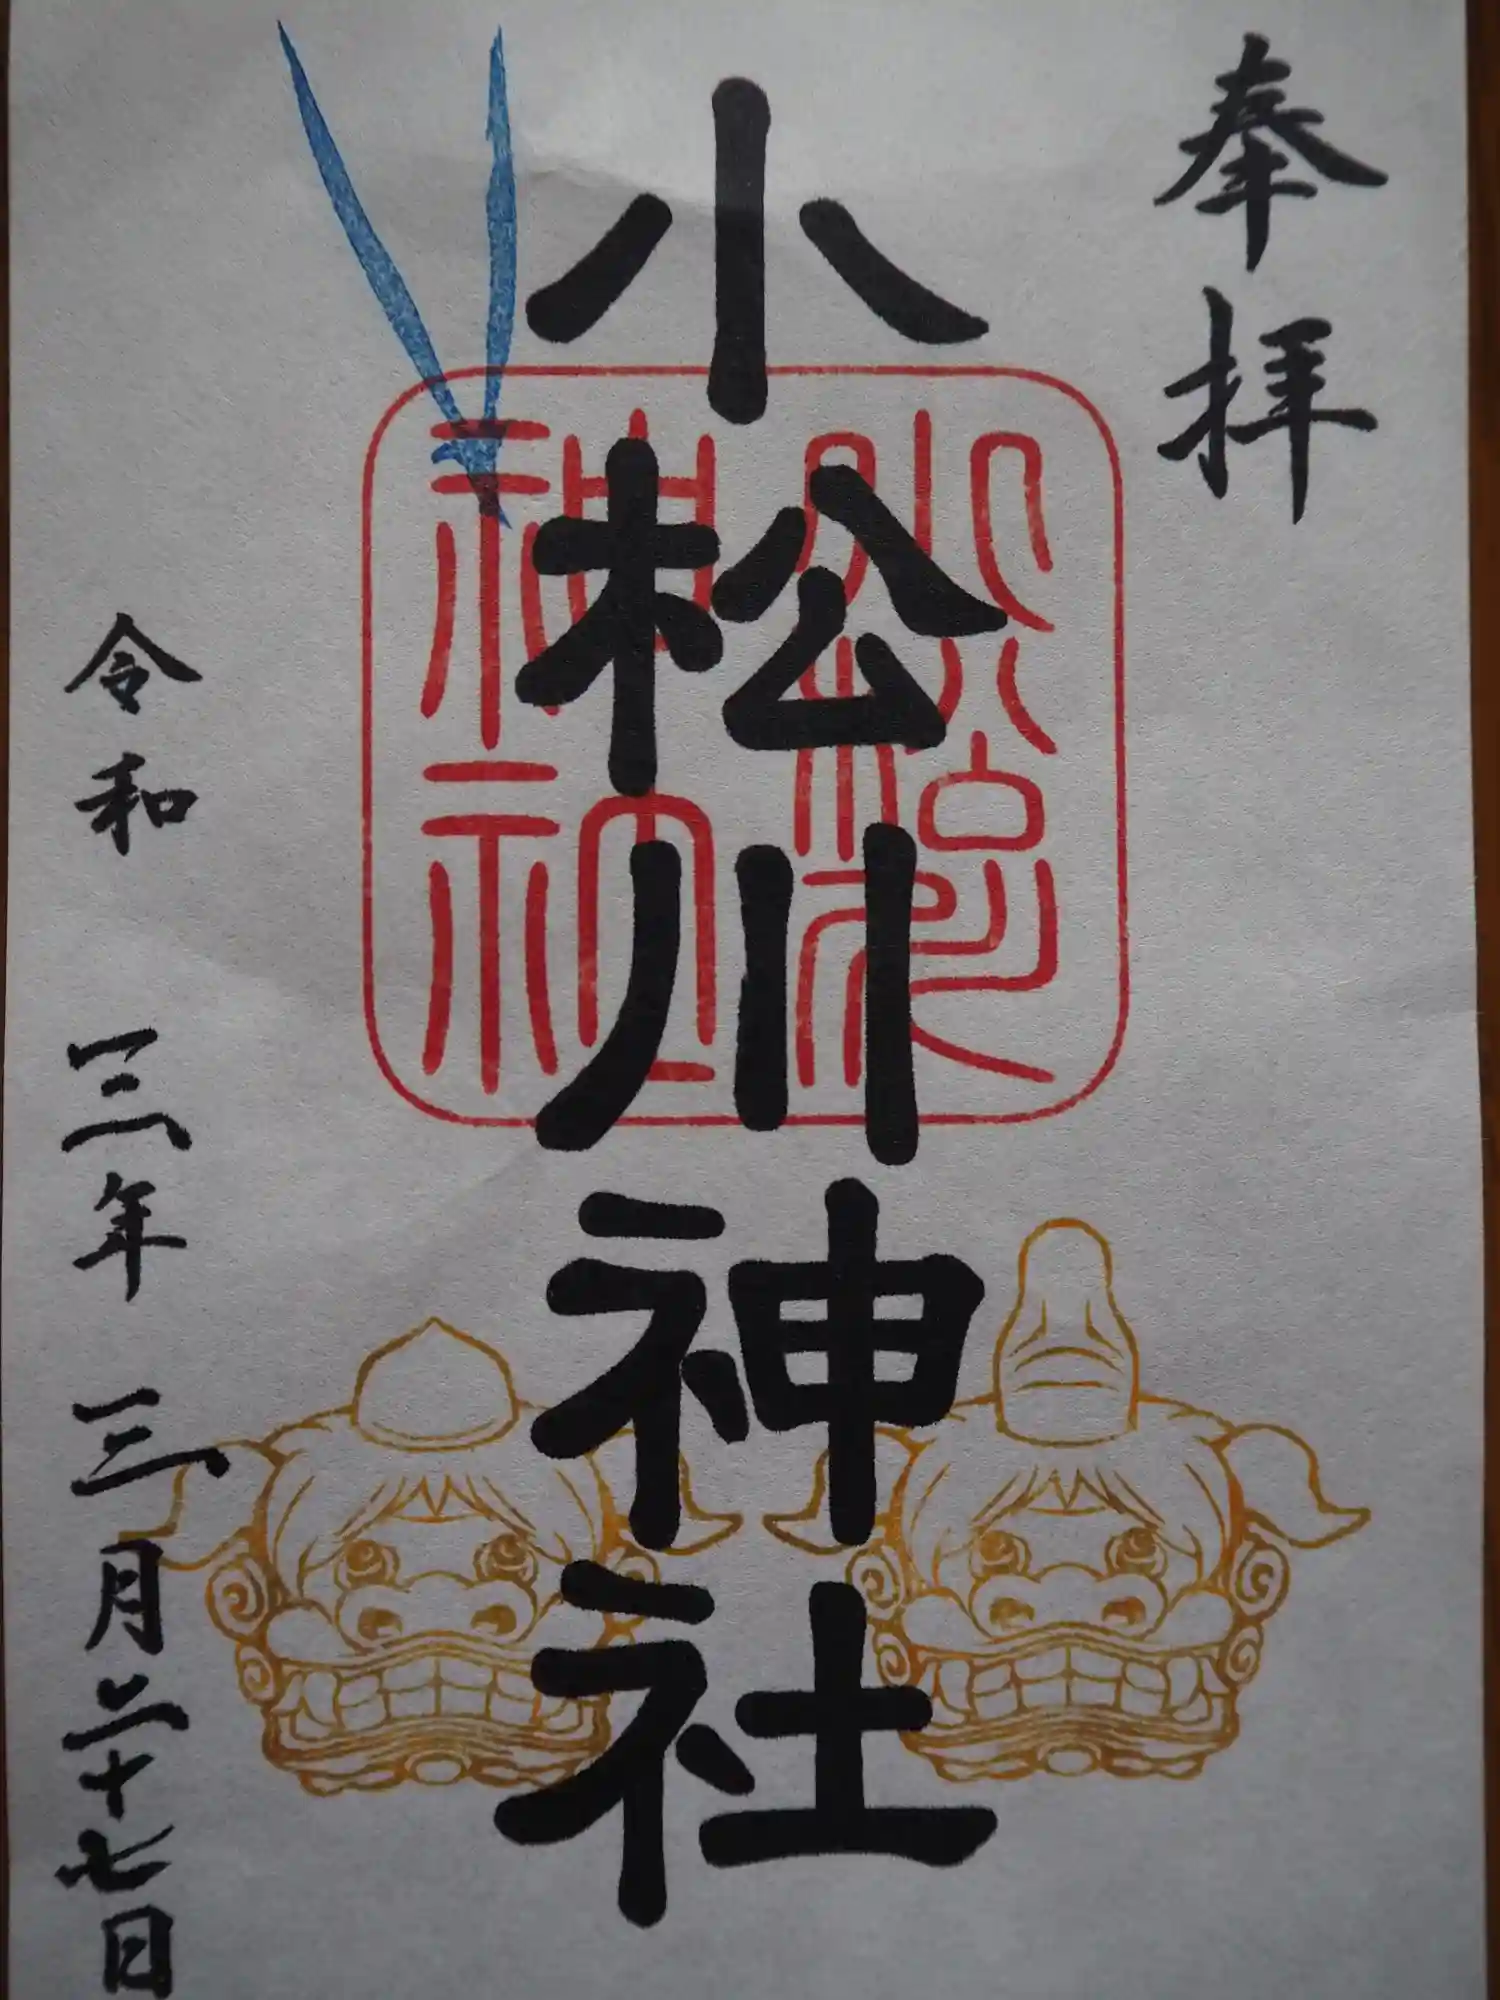 奉拝
小松川神社
小松川神社
令和三年三月二十七日